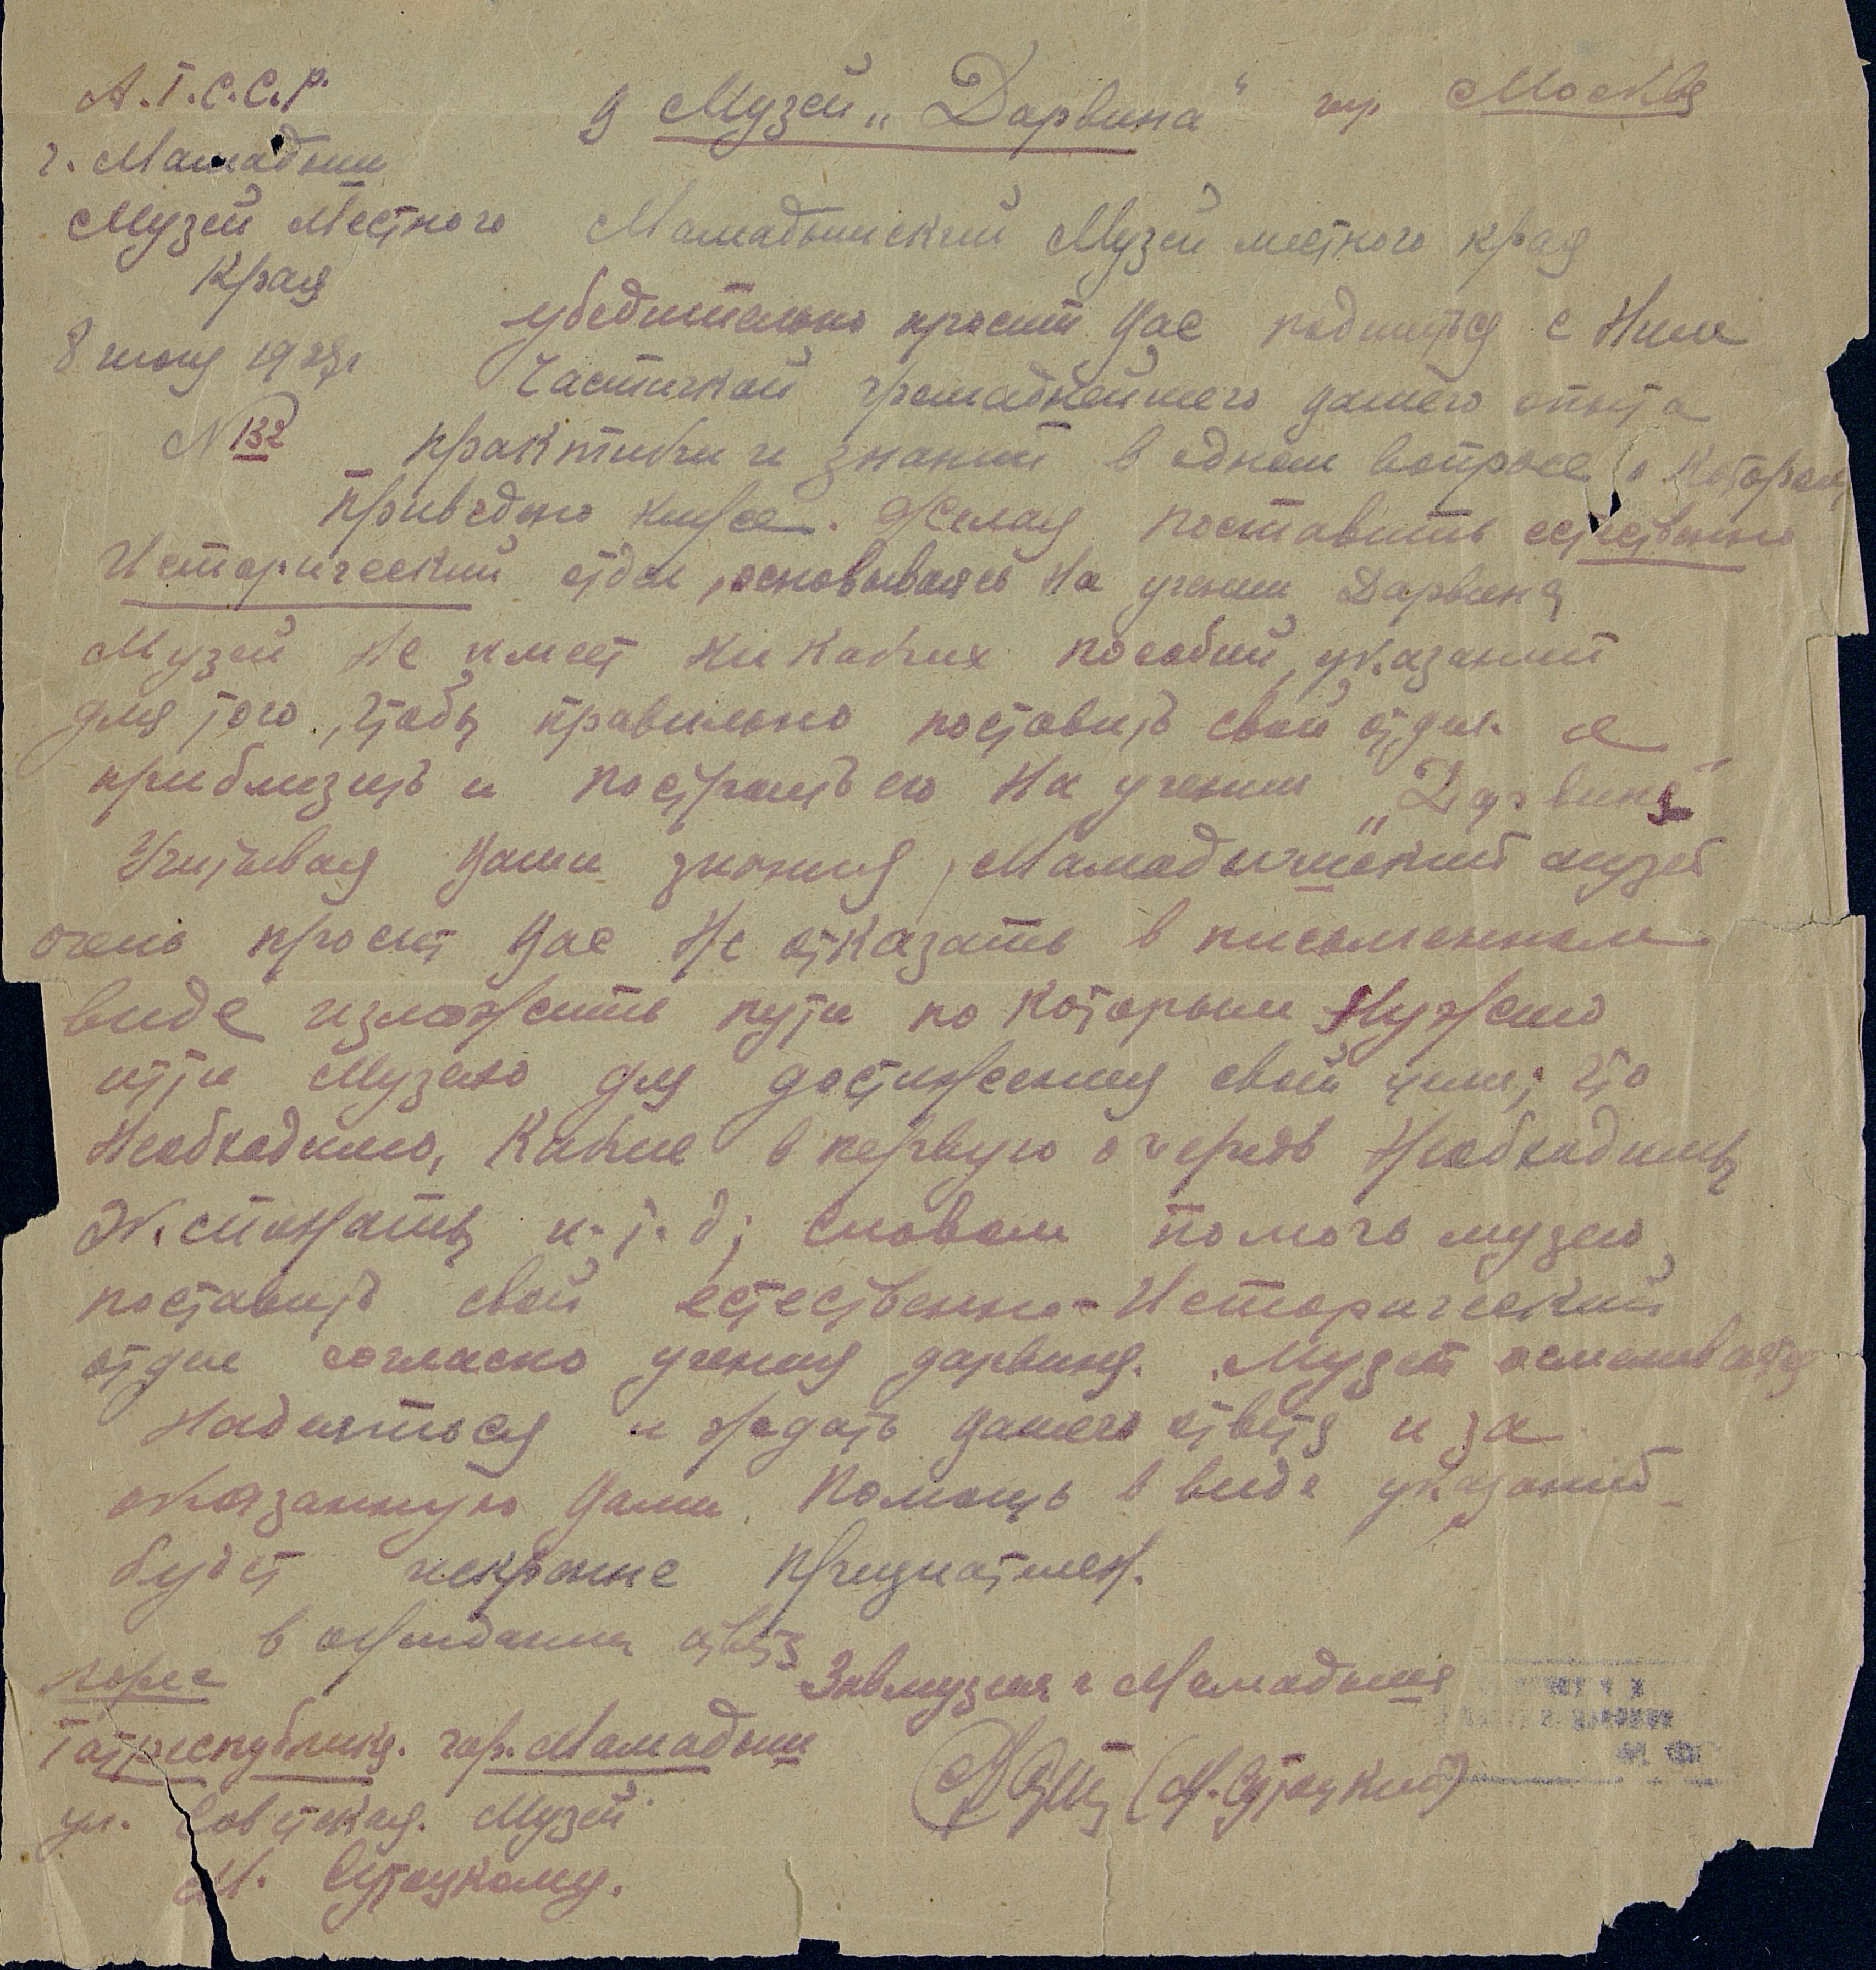 А.Т.С.С.Р.
г. Мамадыш
Музей Местного
Края
8 июня 1928г.
N 132
В Музей „Дарвина“ гор Москва
Мамадышский Музей местного края
убедительно просит Вас поделиться с Ним
Частичкой громаднейшего вашего опыта
практики и знаний в одном вопросе о котором
приведено ниже. Желая поставить естественно
Исторический отдел, основываясь на учении Дарвина
Музей не имеет никаких пособий, указаний
для того, чтобы правильно поставить свой отдел и
приблизить и построить его на учении „Дарвина“
Учитывая Ваши знания, Мамадышский музей
очень просит Вас не отказать в письменном
виде изложить пути по которым Нужно
итти Музею для достижения свой цели; что
Необходимо, Какие в первую очередь Необходимы
Экспонаты и.т.д; словом помочь музею
поставить свой естественно-Исторический
отдел согласно учения дарвина. Музей осмеливается
Надеяться и ждать вашего ответа и за
оказанную Вами помощь в виде указаний
будет искренне Признателен.
в ожидании ответа
Завмузея г Мамадыша
(М. Сутоцкий)
Адрес
Татреспублика. гор. Мамадыш
ул. Советская. Музей
М. Сутоцкому.